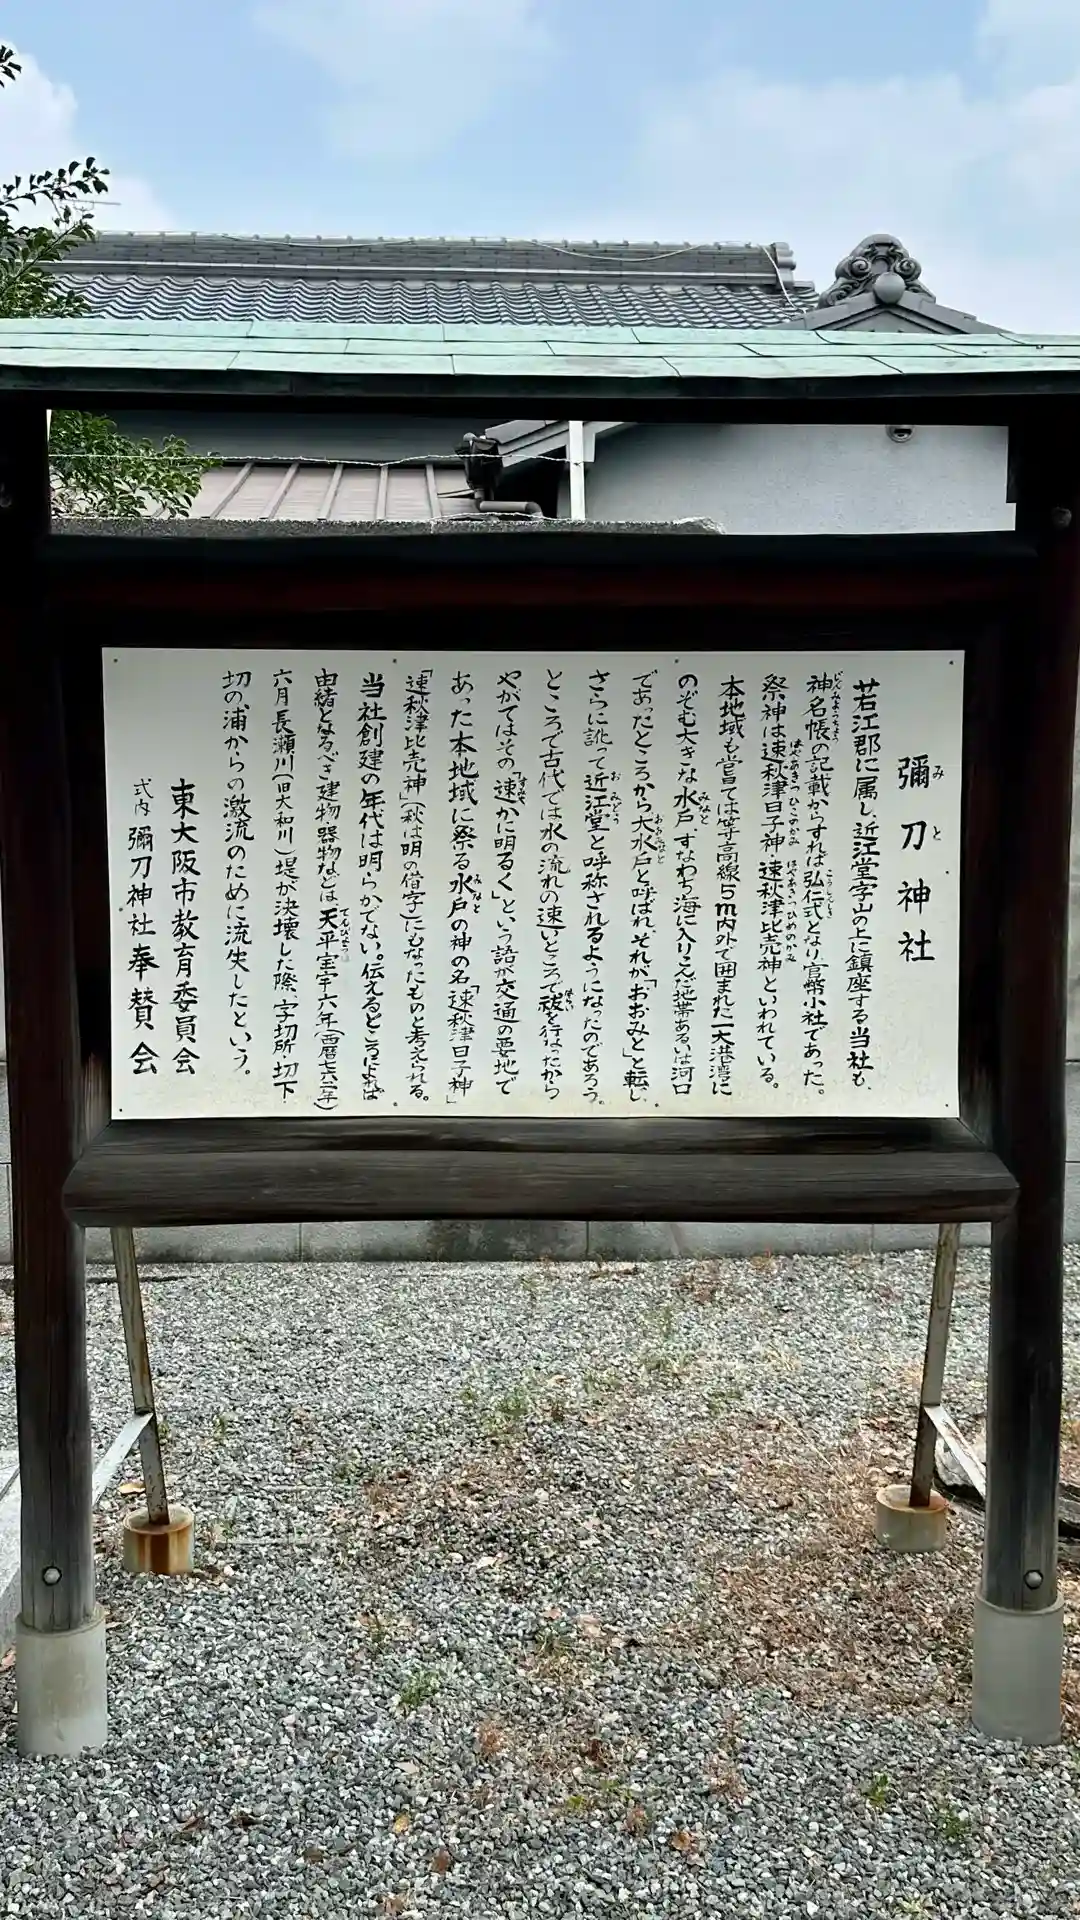 彌刀神社
若江郡に属し、近江堂字山の上に鎮座する当社も、
神名帳の記載からすれば弘仁式となり官幣小社であった。
祭神は速秋津日子神、速秋津比売神といわれている。
本地域も嘗ては等高線5m内外で囲まれた一大港湾に
のぞむ大きな水戸すなわち海に入りこんだ地帯あるいは河口
であったところから大水戸と呼ばれ、それが「おおみと」と転し、
さらに訛って近江堂と呼称されるようになったのであろう。
ところで古代では水の流れの速いところで祓を行なったから
やがてはその「速かに明るく」という語が交通の要地で
あった本地域に祭る水戸の神の名「速秋津日子神」
「速秋津比売神」(秋は明の借字)にもなったものと考えられる。
当社創建の年代は明らかでない。伝えるところによれば
由緒となるべき建物、器物などは、天平宝宇六年(西暦七六二年)
六月長瀬川(旧大和川)堤が決壊した際、字切所・切下・
切の浦からの激流のために流失したという。
東大阪市教育委員会
式内 彌刀神社奉賛会